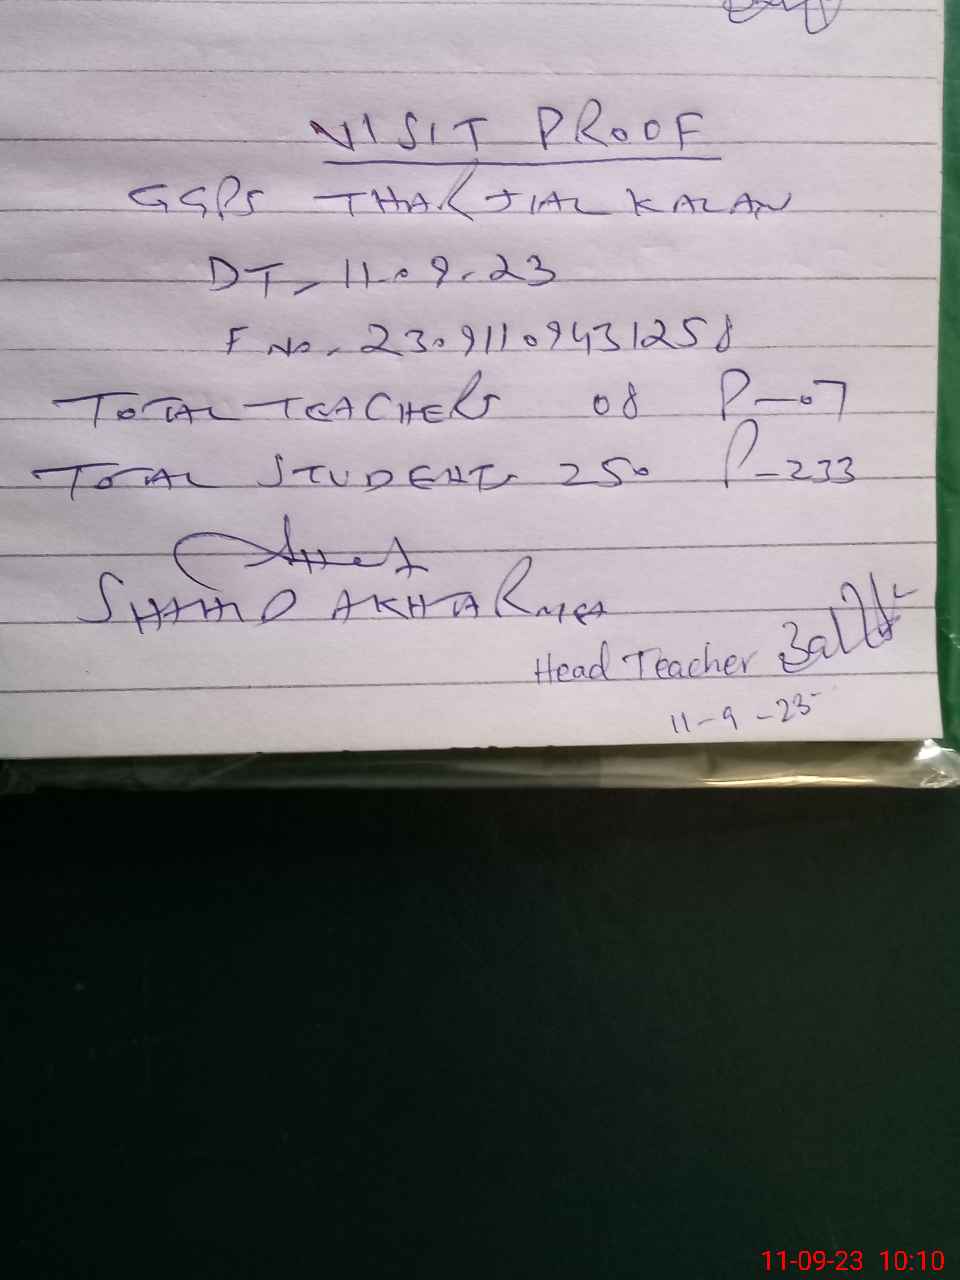 VISIT PROOF
GGPS THARJIAL KALAN
DT- 11.9.23
F No. 23091109431258
TOTAL TEACHERS 08 P-07
TOTAL STUDENTS 250 P-233
SHAHID AKHTAR MEA
Head Teacher
11-9-23
11-09-23 10:10